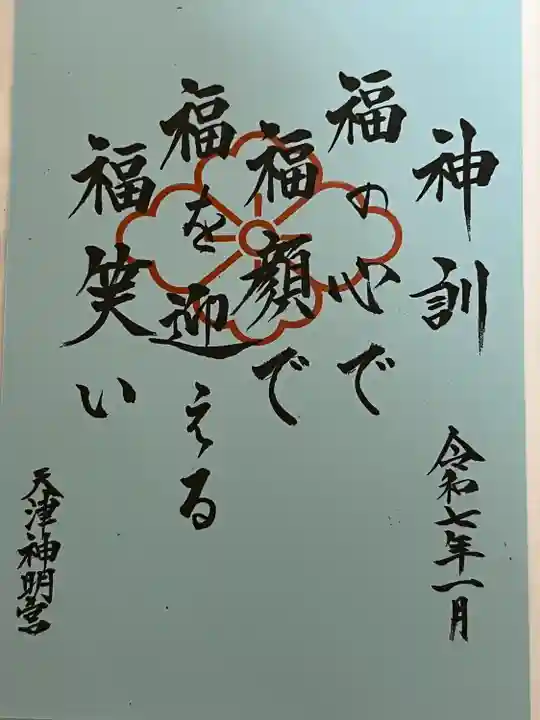 神訓
令和七年一月
福の心で
福顔で
福を迎える
福笑い
天津神明宮